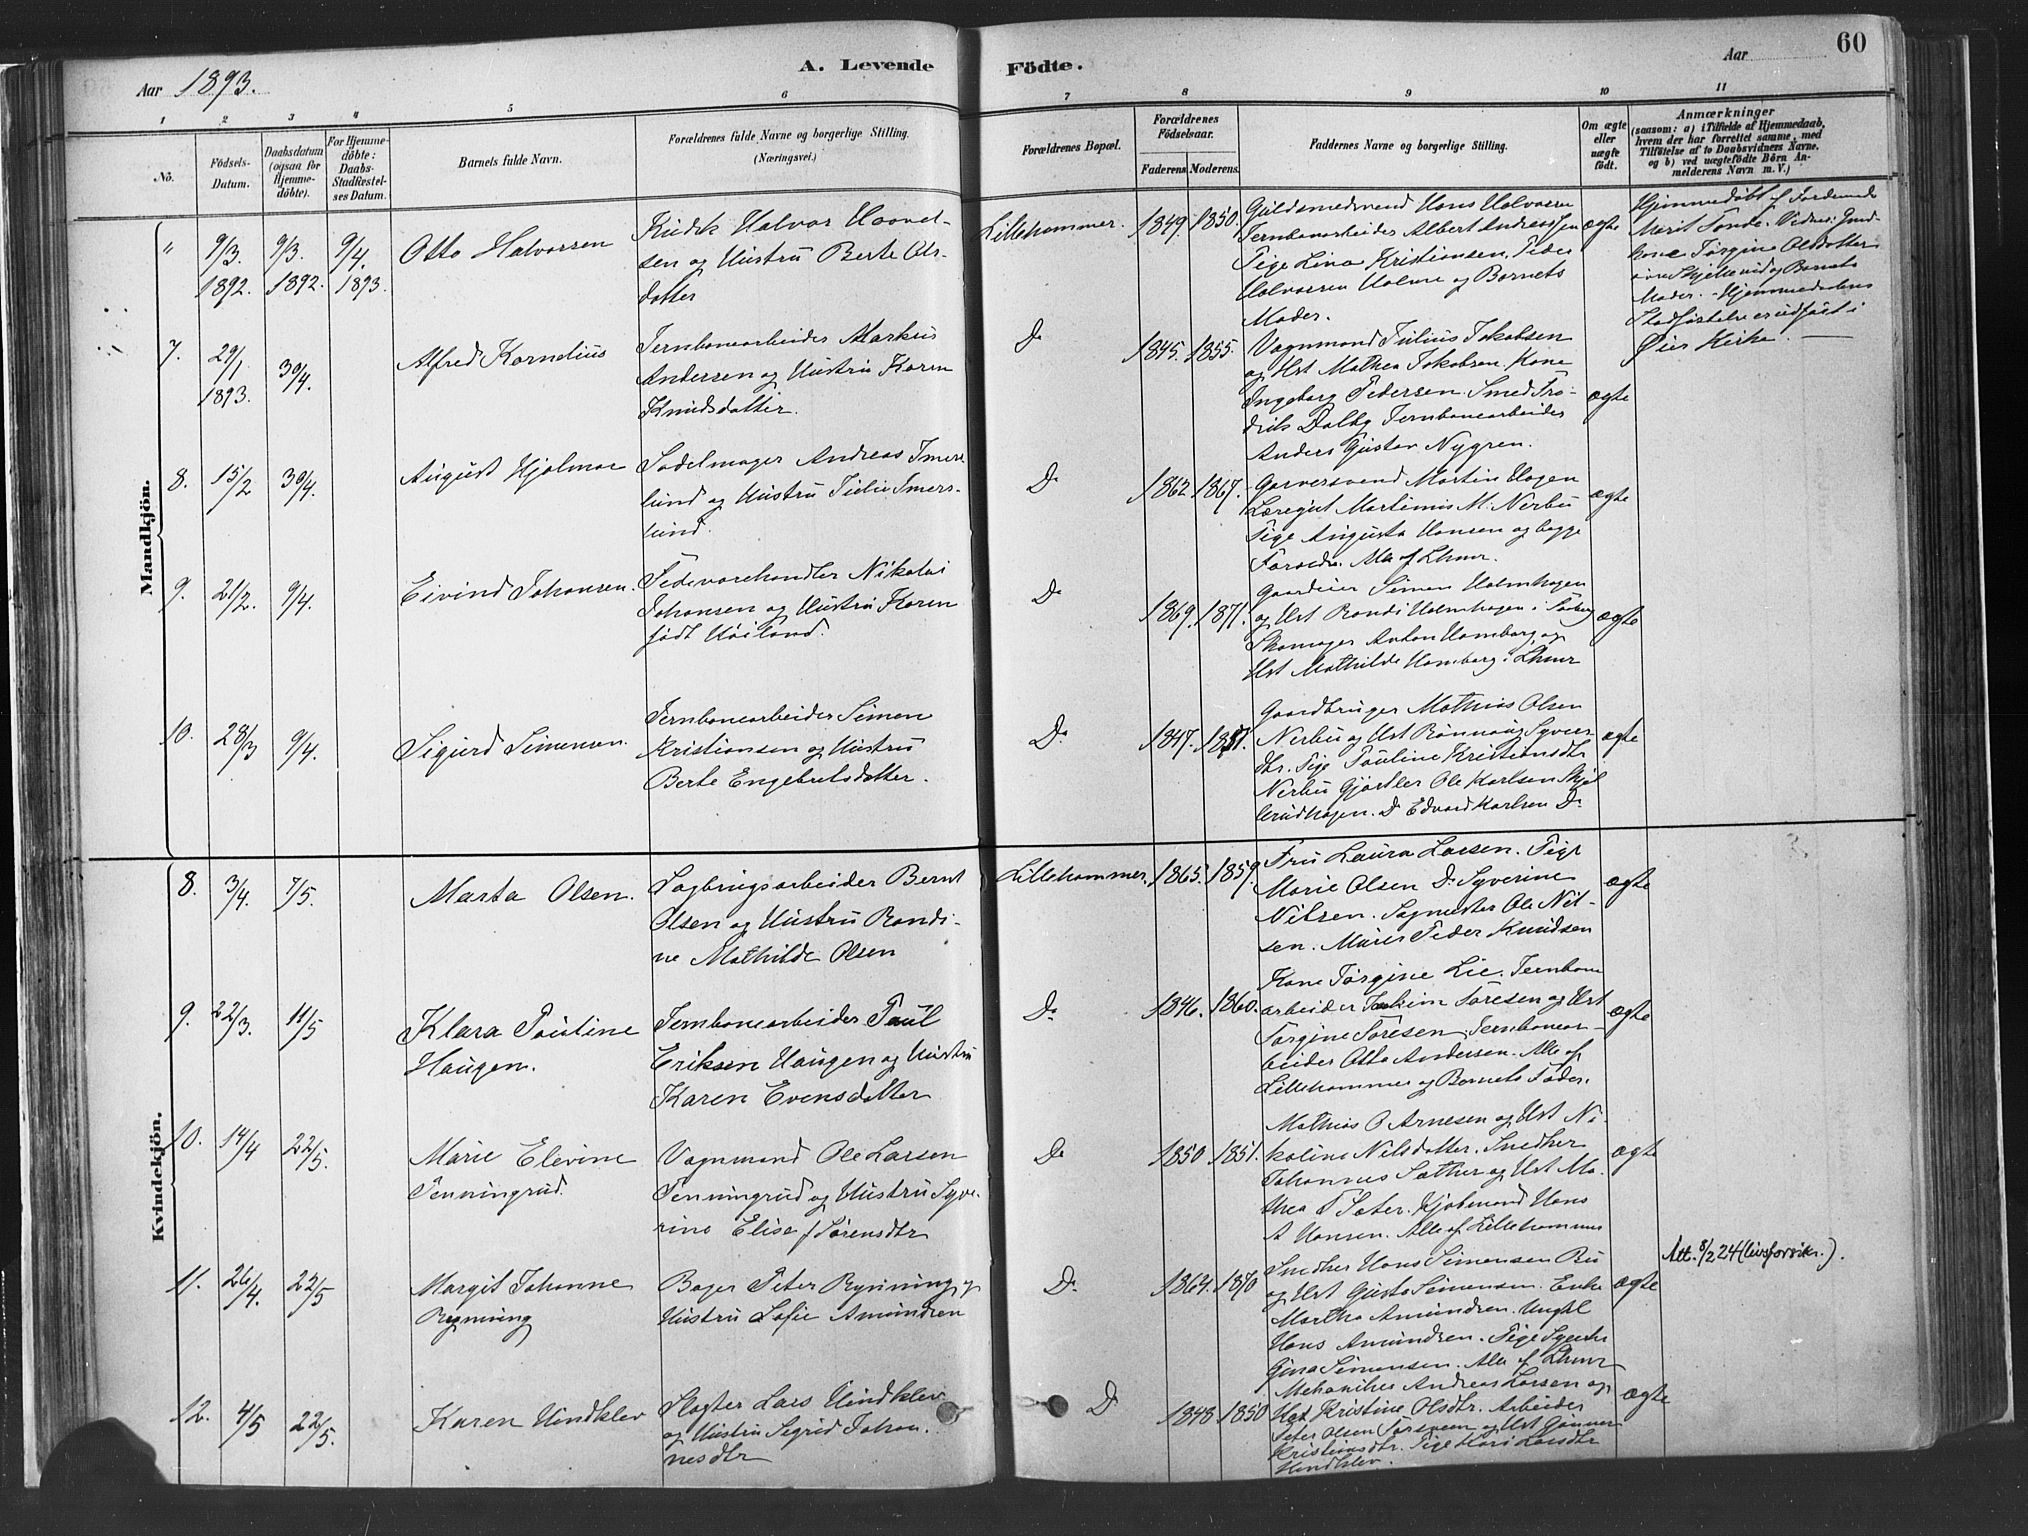 Aar 1893.
A. Levende
Födte.
Aar
60
1
2
3
4
5
6
7
8
9
10
11
No.
Födsels-
Datum.
Daabsdatum
(ogsaa for
Hjemme-
döbte).
For Hjemme-
döbte:
Daabs-
Stadfæstel-
ses Datum.
Barnets fulde Navn.
Forældrenes fulde Navne og borgerlige Stilling.
(Næringsvei.)
Forældrenes Bopæl.
Forældrenes
Födselsaar.
Faderens
Moderens.
Faddernes Navne og borgerlige Stilling.
Om ægte
eller
uægte
födt.
Anmærkninger
(saasom: a) i Tilfælde af Hjemmedaab,
hvem der har forrettet samme, med
Tilföielse af to Daabsvidners Navne,
og b) ved uægtefödte Börn An-
melderens Navn m. V.)
Mandkjön.
"
9/3.
1892.
9/3.
1892.
9/4.
1893.
Otto Halvorsen
Halvor Haavel-
sen og Hustru Berte Ols-
datter
Lillehammer.
1849.
1850.
Guldsmedsvend Hans Halvorsen
Jernbanearbeider Albert Andreassen
Pige Lina Kristiansen, Peder
Halvorsen Holme og Barnets
Moder.
ægte
Hjemmedöbt af Jordemod
Marit Tande. Vidner: Gaard-
kone Törgine Olsdatter
og Barnets
Moder. Hjemmedaabens
Stadfæstelse er udført i
Øier Kirke.
7.
29/1
1893.
30/4.
Alfred Kornelius
Jernbanearbeider Markus
Andersen og Hustru Karen
Knudsdatter.
Do
1845.
1855.
Vognmand Julius Jakobsen
og Hst Mathea Jakobsen. Kone
Ingeborg Pedersen. Smed Fre-
drik Dalby Jernbanearbeider
Anders Gustav Nygren.
ægte
8.
15/2
30/4.
August Hjalmar
Sadelmager Andreas Smers-
lund og Hustru Julie Smers-
lund.
Do
1862.
1867.
Garversvend Martin Hagen
Læregut Martinius M. Nerbu
Pige Augusta Hansen og begge
Foreldre. Alle af Lhmr.
ægte
9.
21/2.
9/4.
Eivind Johansen.
Fedevarehandler Nikolai
Johansen og Hustru Karen
født Høiland.
Do
1869.
1871.
Gaardeier Simen Holmhagen
og Hst Randi Holmhagen i Faaberg
Skomager Anton Hamborg og
Hst Mathilde Hamborg i Lhmr
ægte
10.
28/3
9/4.
Sigurd Simensen.
Jernbanearbeider Simen
Kristiansen og Hustru
Berte Engebretsdatter.
Do
1847.
1851.
Gaardbruger Mathias Olsen
Nerbu og Hst Rönnaug Syver-
dtr. Pige Pauline Kristiansdtr
Nerbu Gjørtler Ole Karlsen Skjel
lerudhagen. Do Edvard Karlsen Do
ægte
Kvindekjön.
8.
3/4.
7/5.
Marta Olsen.
Sagbrugsarbeider Bernt
Olsen og Hustru Randi-
ne Mathilde Olsen
Lillehammer.
1865.
1859.
Fru Laura Larsen. Pige
Marie Olsen Do Syverine
Nilsen. Sagmester Ole Nil-
sen. Murer Peder Knudsen
ægte
9.
22/3.
11/5
Klara Pauline
Haugen.
Jernbanearbeider Paul
Eriksen Haugen og Hustru
Karen Evensdatter
Do
1846.
1860.
Kone Törgine Lie. Jernbane
arbeider Joakim Toresen og Hst
Törgine Toresen. Jernbanear-
beider Otto Andersen. Alle af
Lillehammer og Barnets Fader.
ægte
10.
14/4
22/5.
Marie Elevine
Penningrud.
Vognmand Ole Larsen
Penningrud og Hustru Syve-
rine Elise f Sörensdtr
Do
1850
1851.
Mathias O Arnesen og Hst Ni-
koline Nilsdatter. Snedker
Johannes Sæther og Hst Ma-
thea T Sæter. Kjøbmand Hans
A Hansen. Alle af Lillehammer
ægte
11.
26/4.
22/5
Margit Johanne
Rynning
Bager Peter Rynning og
Hustru Sofie Amundsen
Do.
1864.
1870
Snedker Hans Simensen Bu
og Hst Gusta Simensen. Enke
Martha Amundsen. Ungkl
Hans Amundsen. Pige
Gina Simensen. Alle af Lhmr
ægte
Att. 8/2 24 (livsforsikr.).
12.
4/5
22/5.
Karen Hindklev
Slagter Lars Hindklev
og Hustru Sigrid Johan-
nesdtr
Do
1848
1850
Mekanikus Andreas Larsen og
Hst Kristine Olsdtr. Arbeider
Peter Olsen og Hst Gunner
Kristiansdtr. Pige Kari Larsdtr
Hindklev.
ægte